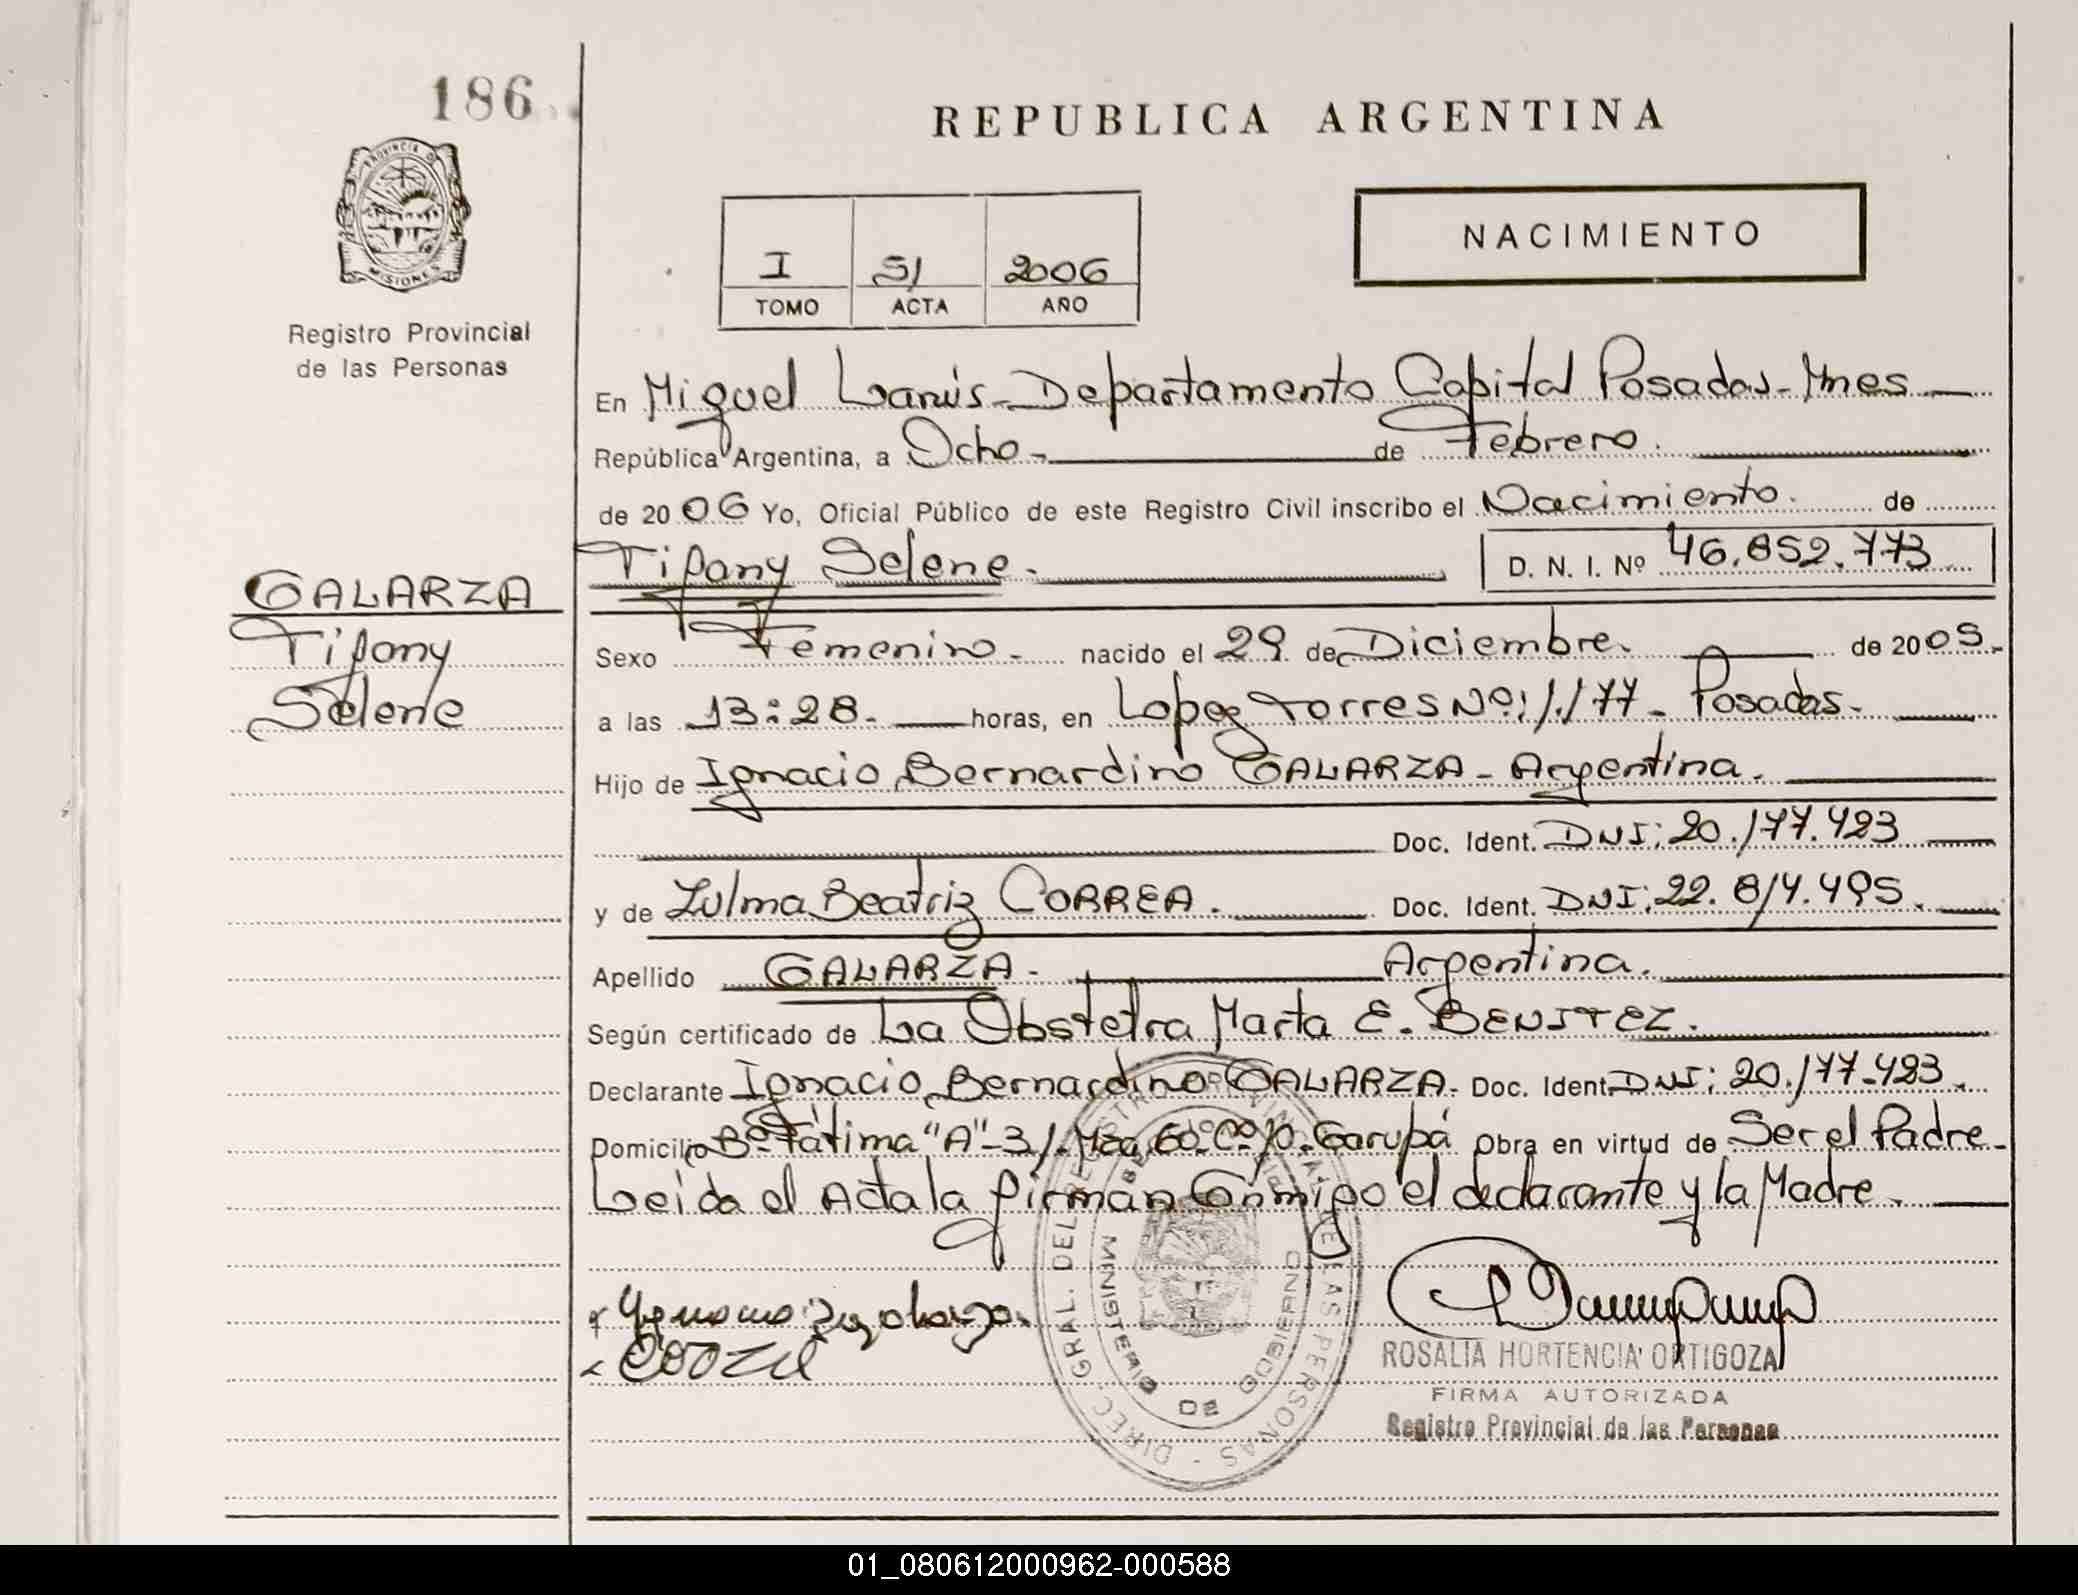 186
REPUBLICA ARGENTINA
PROVINCIA D
MISIONES
Registro Provincial
de las Personas
I 51 2006
TOMO ACTA AÑO
NACIMIENTO
En Miguel Lanús - Departamento Capital Posadas - Mnes
República Argentina, a Ocho - de Febrero.
de 2006 Yo, Oficial Público de este Registro Civil inscribo el Nacimiento. de
Tifany Selene. D. N. I. Nº 46.852.773
GALARZA
Tifany
Selene
Sexo Femenino - nacido el 29 de Diciembre. de 2005.
a las 13:28. horas, en Lopez Torres Nº: 1.177 - Posadas.
Hijo de Ignacio Bernardino GALARZA - Argentina.
Doc. Ident. DNI: 20.177.423
y de Zulma Beatriz CORREA. Doc. Ident. DNI: 22.814.495.
Apellido GALARZA. Argentina.
Según certificado de La Obstetra Marta E. BENITEZ.
Declarante Ignacio Bernardino GALARZA. Doc. Ident. DNI: 20.177.423.
Domicilio Bº Fátima "A" - 31. Mza. 60. Cº 10. Garupá Obra en virtud de Ser el Padre.
Leida el Acta la firman Conmigo el declarante y la Madre.
DIREC. GRAL. DEL REGISTRO PROVINCIAL DE LAS PERSONAS
MINISTERIO DE GOBIERNO
ROSALIA HORTENCIA ORTIGOZA
FIRMA AUTORIZADA
Registro Provincial de las Personas
01_080612000962-000588